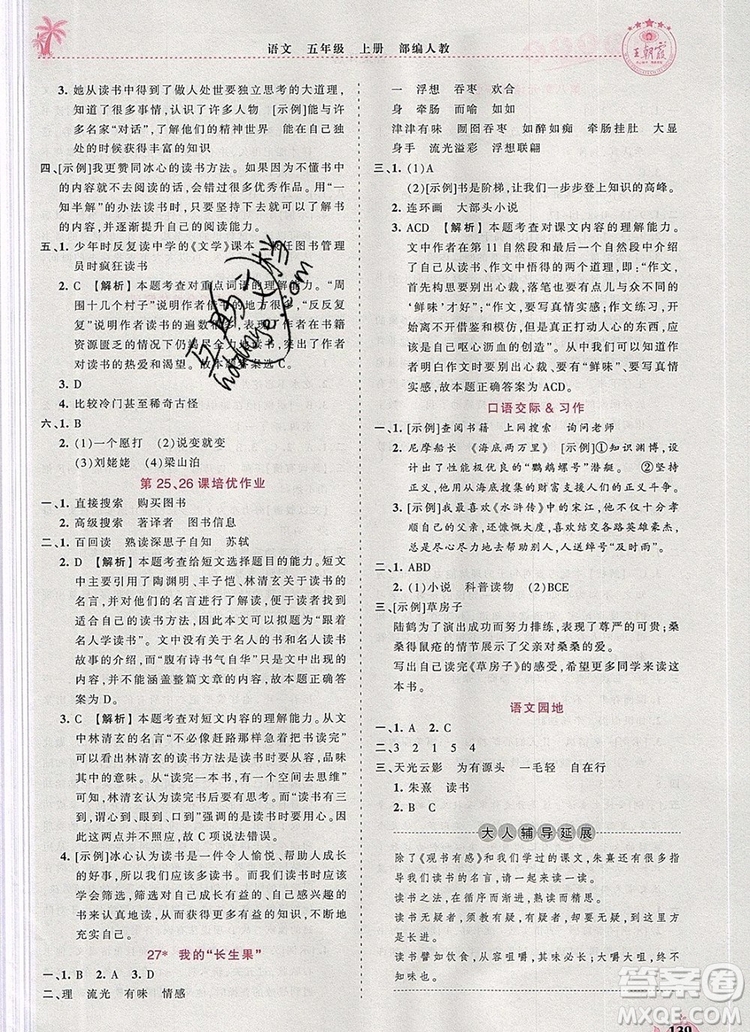 语文 五年级 上册 部编人教
王朝霞
3. 她从读书中领悟了做人处世要独立思考的大道理,
知道了很多事情,了解了许多人物 [示例]能与许
多名家“对话”,了解他们的精神世界 能在自己独
处中获得丰富的知识
四、[示例]我更赞同冰心的读书方法。如果因不懂书中
的内容就不能阅读的话,会错过很多优秀作品。“一
知半解”的方法可以让我们坚持阅读下去,同时又可
以提升自己的阅读能力。
五、1. 少年时反复读中学的《文学》课本 担任图书管理
员时疯狂读书
2. C 【解析】本题考查对重点词语的理解能力。“周
围十几个村子”说明作者借书的范围之广,“反反复
复”说明作者读书的遍数很多,表现了作者在书籍
资源匮乏的情况下仍尽全力地读书,体现了作者对
读书的热爱和渴望。故本题答案选 C。
3. D
4. 比较冷门甚至稀奇古怪
六、1. B
2. (1)一个愿打 (2)说变就变
(3)刘姥姥 (4)梁山泊
第 25、26 课培优作业
一、1. 直接搜索 购买图书
2. 高级搜索 著译者 图书信息
二、1. 百回读 熟读深思子自知 苏轼
2. D 【解析】本题考查给短文选择题目的能力。短文
中主要引用了陶渊明、丰子恺、林清玄等人关于读书的
名言,并写了这些名言对读者的启发。
适合自己的读书方法,因此可以拟题为“跟着
名人学读书”。文中没有关于名人的书和名人读书
故事的介绍,而“腹有诗书气自华”只强调了读书的
作用,都不能涵盖整篇文章的内容。故本题正确答
案为 D。
3. C 【解析】本题考查对短文内容的理解能力。从文
中林清玄的名言“不要像赶路那样急着把书读完,
要像品味一杯好茶,闻嗅一朵花香,体会其中深长
的意味”可知,他认为读书不能着急,要慢慢品味。
因此,“读完一本书,要有一个空间去思想回
味”并不是林清玄认为读书要做到的“三到(即心
到、眼到、口到)”的意思,“三到”是朱熹对读书的理
解。故本题中 C 项说法错误。
4. [示例]冰心认为读书是一件令人愉悦、帮助人成长
的好事,她鼓励我们多读书,但在读书时要进行适
当的筛选,选择对自己成长有益的、自己感兴趣的
书籍来读。我们要多读好书,多读有益的书,不断地
充实自己。
27* 我的“长生果”
一、1. B 2. A 3. D
二、理 流光 有味 情感
一 浮想 吞枣 欢合
身 牵肠 而喻 如如
津津有味 囫囵吞枣 如醉如痴 牵肠挂肚 大显
身手 流光溢彩 浮想联翩
三、1. (1)A
(2)[示例]书是阶梯,让我们一步步登上知识的高峰。
2. 连环画 大部头小说
3. ACD 【解析】本题考查对课文内容的理解能力。
文中作者在第 11 自然段写到,“于是,我又悟出
首先构思要别出心裁,落笔也要有点儿与众不同的
‘鲜味’才好”;“于是,我又悟出:作文练习,开始离
不开借鉴和模仿,但是真正打动人心的东西,应该是
自己呕心沥血的创造”。由此可知,课外阅读使作
者明白作文写作要别出心裁、要有“鲜味”、要写真
情实感,故本题正确答案为 ACD。
口语交际 & 习作
一、1. [示例]查阅书籍 上网搜索 询问老师
2. 尼摩船长 《海底两万里》 [示例]①知识渊博,博
学多才,能设计和建造“鹦鹉螺号”潜艇。 ②坚毅
勇敢,他用从海底搜集的财富支持人们的正义斗争。
3. [示例]我喜欢《水浒传》中的宋江,他对父母十分孝
顺自己的父母。而且他愿意结交各路英雄豪杰,
乐于助人,为人仗义,因此被称为“及时雨”。
二、1. ABD
2. (1)小说 科普读物 (2)BCE
三、[示例]草房子
陆鹤为了演出成功努力排练,表现了尊严的可贵;桑
桑得鼠疮的情节展示了父亲对桑桑的爱。
写出自己读完《草房子》的感受,希望更多的人阅读这
本书。
语文园地
一、1. A 2. C
二、3 2 1 5 4
三、天光云影 为有源头 一毛轻 自在行
1. 朱熹 读书
2. B C
大人辅导延展
除了《观书有感》和我们学过的课文,朱熹还有很多名言
指导我们读书。
读书之法,在循序而渐进,熟读而精思。
读书无疑者,须教有疑,有疑者,却要无疑,到这里方
是长进。
读书譬如饮食,从容咀嚼,其味必长;大嚼大咽,终不
知味也。
答案圈
MXQE.COM
139